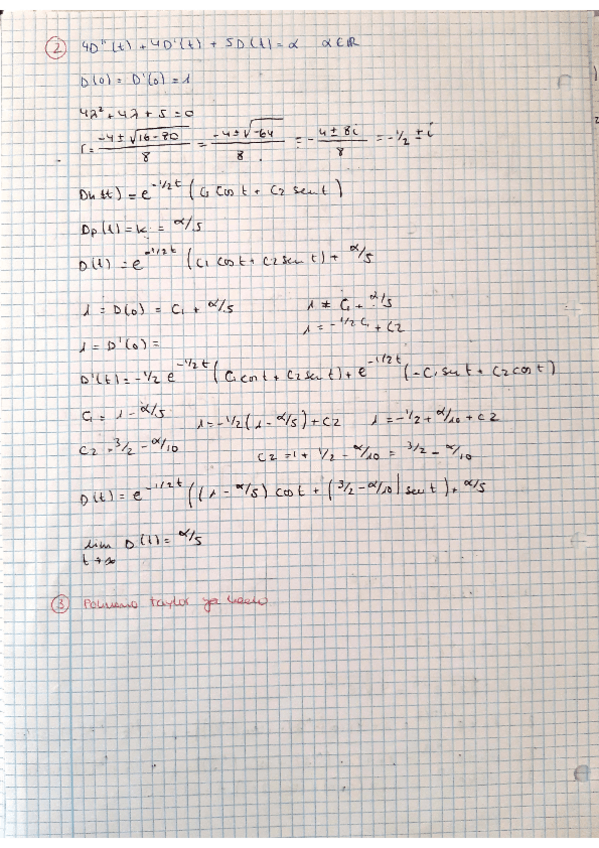 ② 4D''(t) + 4D'(t) + 5D(t) = α α ∈ ℝ
D(0) = D'(0) = 1
4λ² + 4λ + 5 = 0
r = (-4 ± √(16-80))/8 = (-4 ± √(-64))/8 = -(4 ± 8i)/8 = -1/2 ± i
Dh(t) = e^(-1/2t) (C1 cos t + C2 sen t)
Dp(t) = k = α/5
D(t) = e^(-1/2t) (C1 cos t + C2 sen t) + α/5
1 = D(0) = C1 + α/5 1 = C1 + α/5
1 = -1/2 C1 + C2
1 = D'(0) =
D'(t) = -1/2 e^(-1/2t) (C1 cos t + C2 sen t) + e^(-1/2t) (-C1 sen t + C2 cos t)
C1 = 1 - α/5 1 = -1/2 (1 - α/5) + C2 1 = -1/2 + α/10 + C2
C2 = 3/2 - α/10 C2 = 1 + 1/2 - α/10 = 3/2 - α/10
D(t) = e^(-1/2t) ((1 - α/5) cos t + (3/2 - α/10) sen t) + α/5
lim D(t) = α/5
t→∞
③ Polinomio Taylor ya hecho